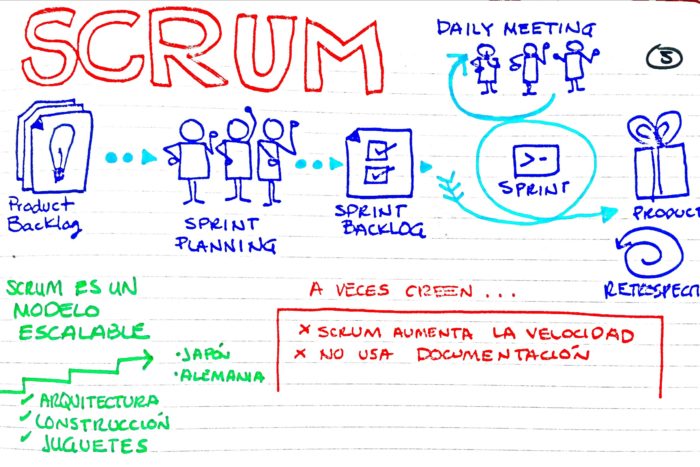 SCRUM
DAILY MEETING
5
Product
Backlog
SPRINT
PLANNING
SPRINT
BACKLOG
>-
SPRINT
PRODUCT
RETROSPECTI
SCRUM ES UN
MODELO
ESCALABLE
• JAPÓN
• ALEMANIA
✓ ARQUITECTURA
✓ CONSTRUCCIÓN
✓ JUGUETES
A VECES CREEN ...
x SCRUM AUMENTA LA VELOCIDAD
x NO USA DOCUMENTACIÓN